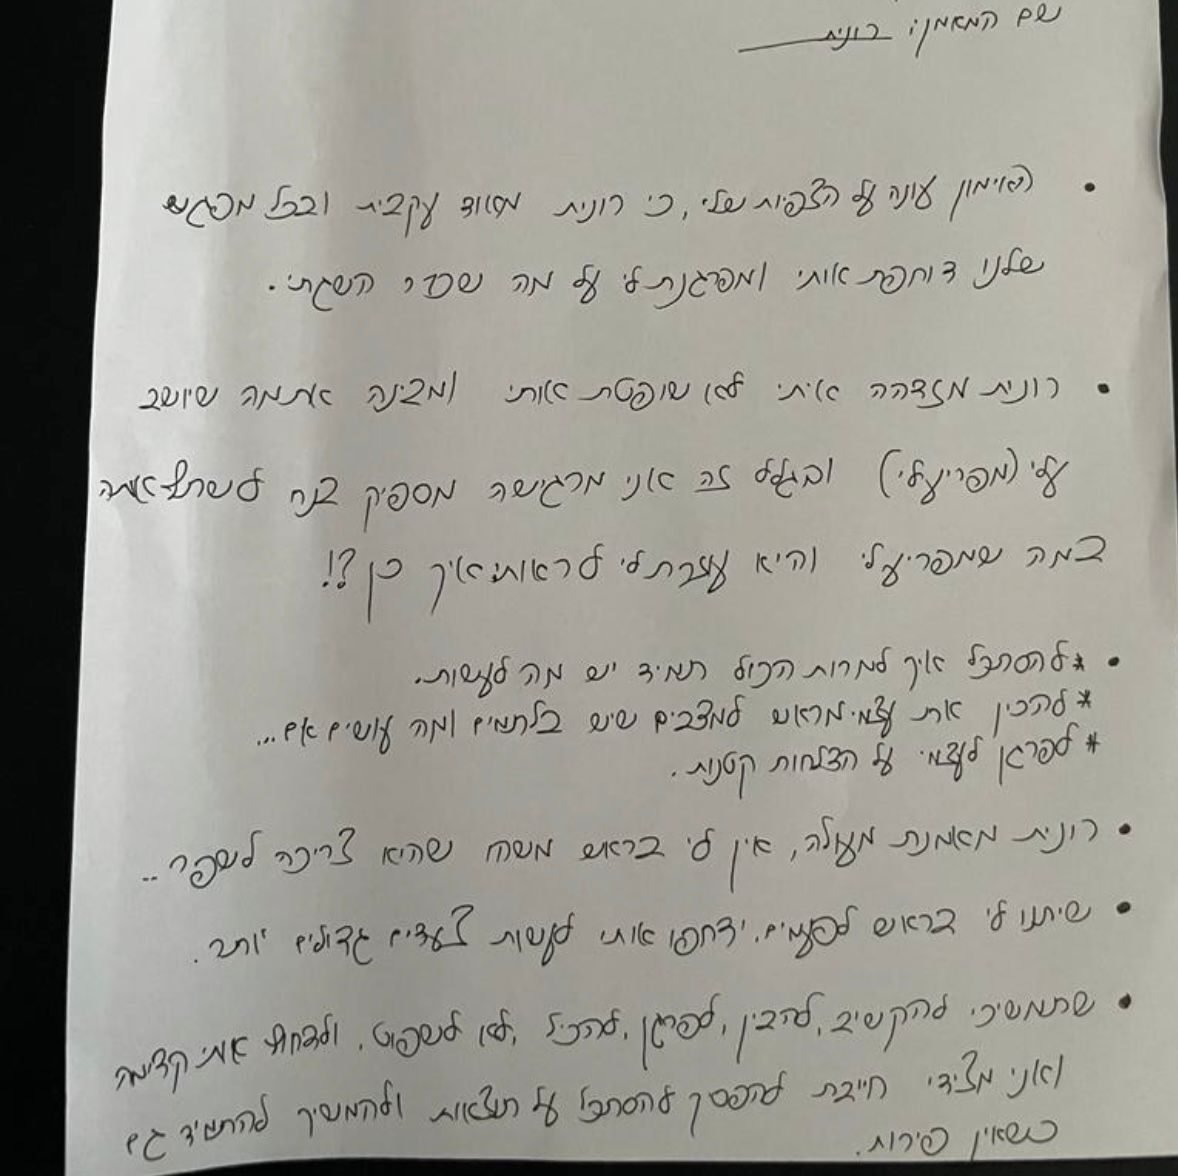 שם המאמן: רונית
• האימון עונה על הצפיות שלי, כי רונית מאוד עקבית ובכל מפגש
שלנו דוחפת אותי ומפרגנת לי על מה שכבר השגתי.
• רונית מזדהה איתי לא שופטת אותי ומבינה את מה שיושב
עלי (מפריע לי) ובגלל זה אני מרגישה מספיק בנח לשתף אותה
במה שמפריע לי והיא עוזרת לי לראות איך כן?!
• *להסתכל איך למרות הכול תמיד יש מה לעשות.
*להכין את עצמי מראש למצבים שיש בלתמים ומה עושים אם...
*לפרגן לעצמי על הצלחות קטנות.
• רונית מאמנת מעולה, אין לי בראש משהו שהיא צריכה לשפר..
• שיתנו לי בראש לפעמים. ידחפו אותי לעשות צעדים גדולים יותר.
• שתמשיכי להקשיב, להבין, לפרגן, להכיל, לא לשפוט, ולדחוף אותי קדימה
ואני מצידי חייבת להפסיק להסתכל על תוצאות ולהמשיך להתמיד גם
כשאין פירות.